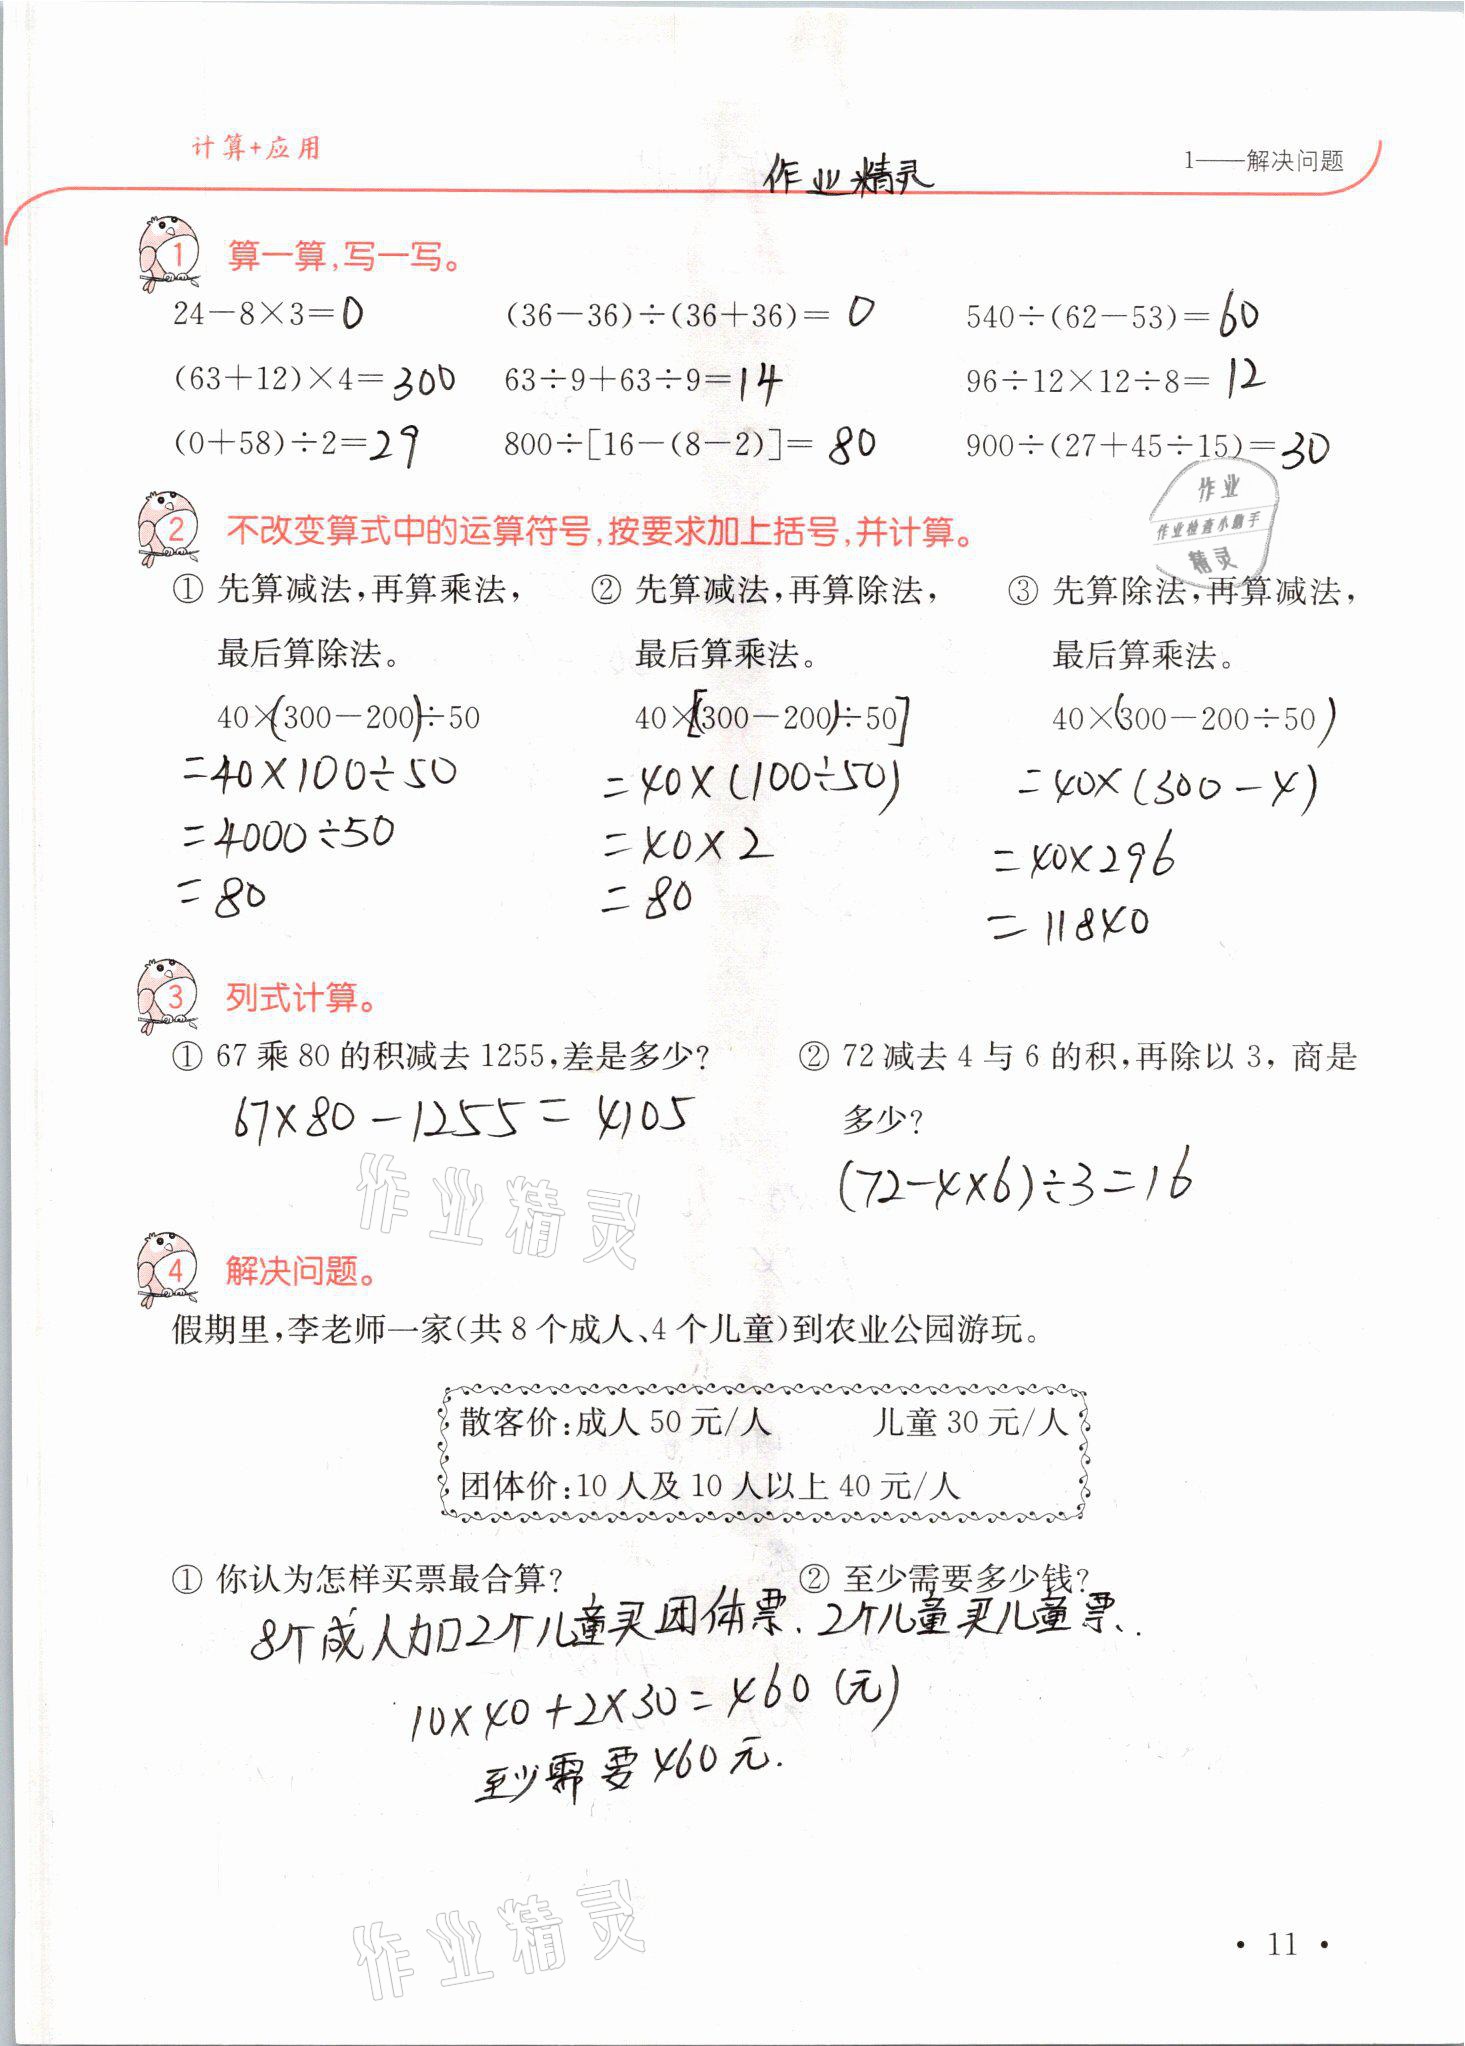 计算+应用
作业精灵
1——解决问题
1 算一算,写一写。
24-8×3=0 (36-36)÷(36+36)=0 540÷(62-53)=60
(63+12)×4=300 63÷9+63÷9=14 96÷12×12÷8=12
(0+58)÷2=29 800÷[16-(8-2)]=80 900÷(27+45÷15)=30
作业
作业检查小助手
精灵
2 不改变算式中的运算符号,按要求加上括号,并计算。
① 先算减法,再算乘法,
最后算除法。
40×(300-200)÷50
=40×100÷50
=4000÷50
=80
② 先算减法,再算除法,
最后算乘法。
40×[(300-200)÷50]
=40×(100÷50)
=40×2
=80
③ 先算除法,再算减法,
最后算乘法。
40×(300-200÷50)
=40×(300-4)
=40×296
=11840
3 列式计算。
① 67乘80的积减去1255,差是多少?
67×80-1255=4105
② 72减去4与6的积,再除以3,商是
多少?
(72-4×6)÷3=16
作业精灵
4 解决问题。
假期里,李老师一家(共8个成人、4个儿童)到农业公园游玩。
散客价:成人50元/人 儿童30元/人
团体价:10人及10人以上40元/人
① 你认为怎样买票最合算? ② 至少需要多少钱?
8个成人加2个儿童买团体票、2个儿童买儿童票..
10×40+2×30=460(元)
至少需要460元.
作业精灵
• 11 •